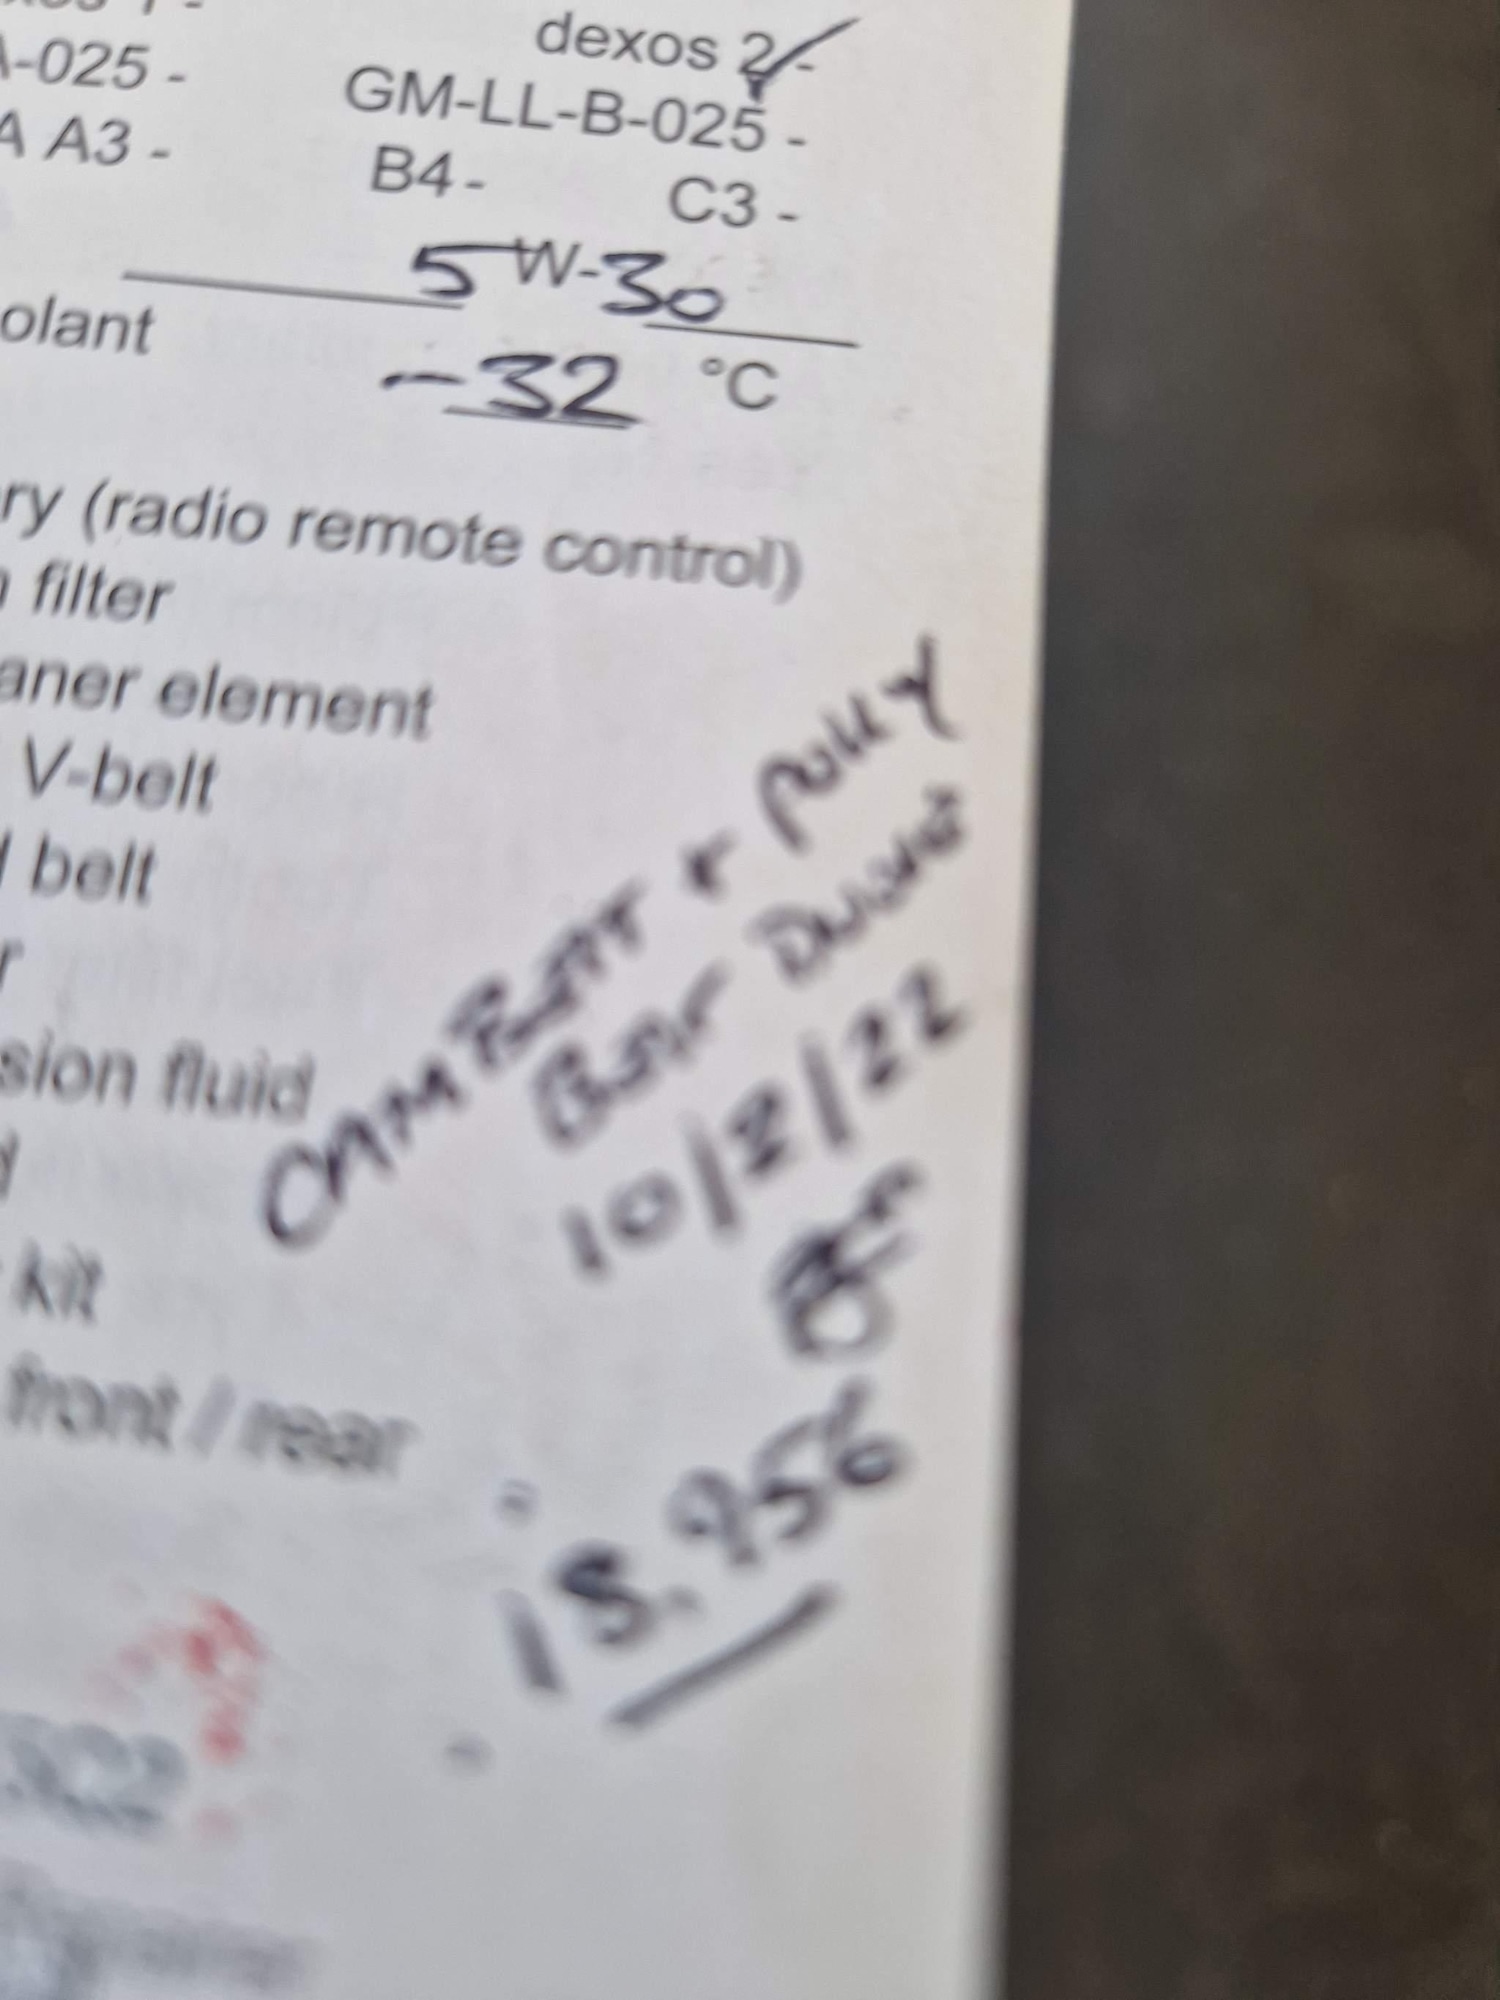 dexos 2 -
A-025 -
GM-LL-B-025 -
A A3 -
B4 -
C3 -
5W-30
olant
-32 °C
ry (radio remote control)
filter
aner element
V-belt
belt
sion fluid
kit
front / rear
CAM BELT + PULLY
BELT
10/2/22